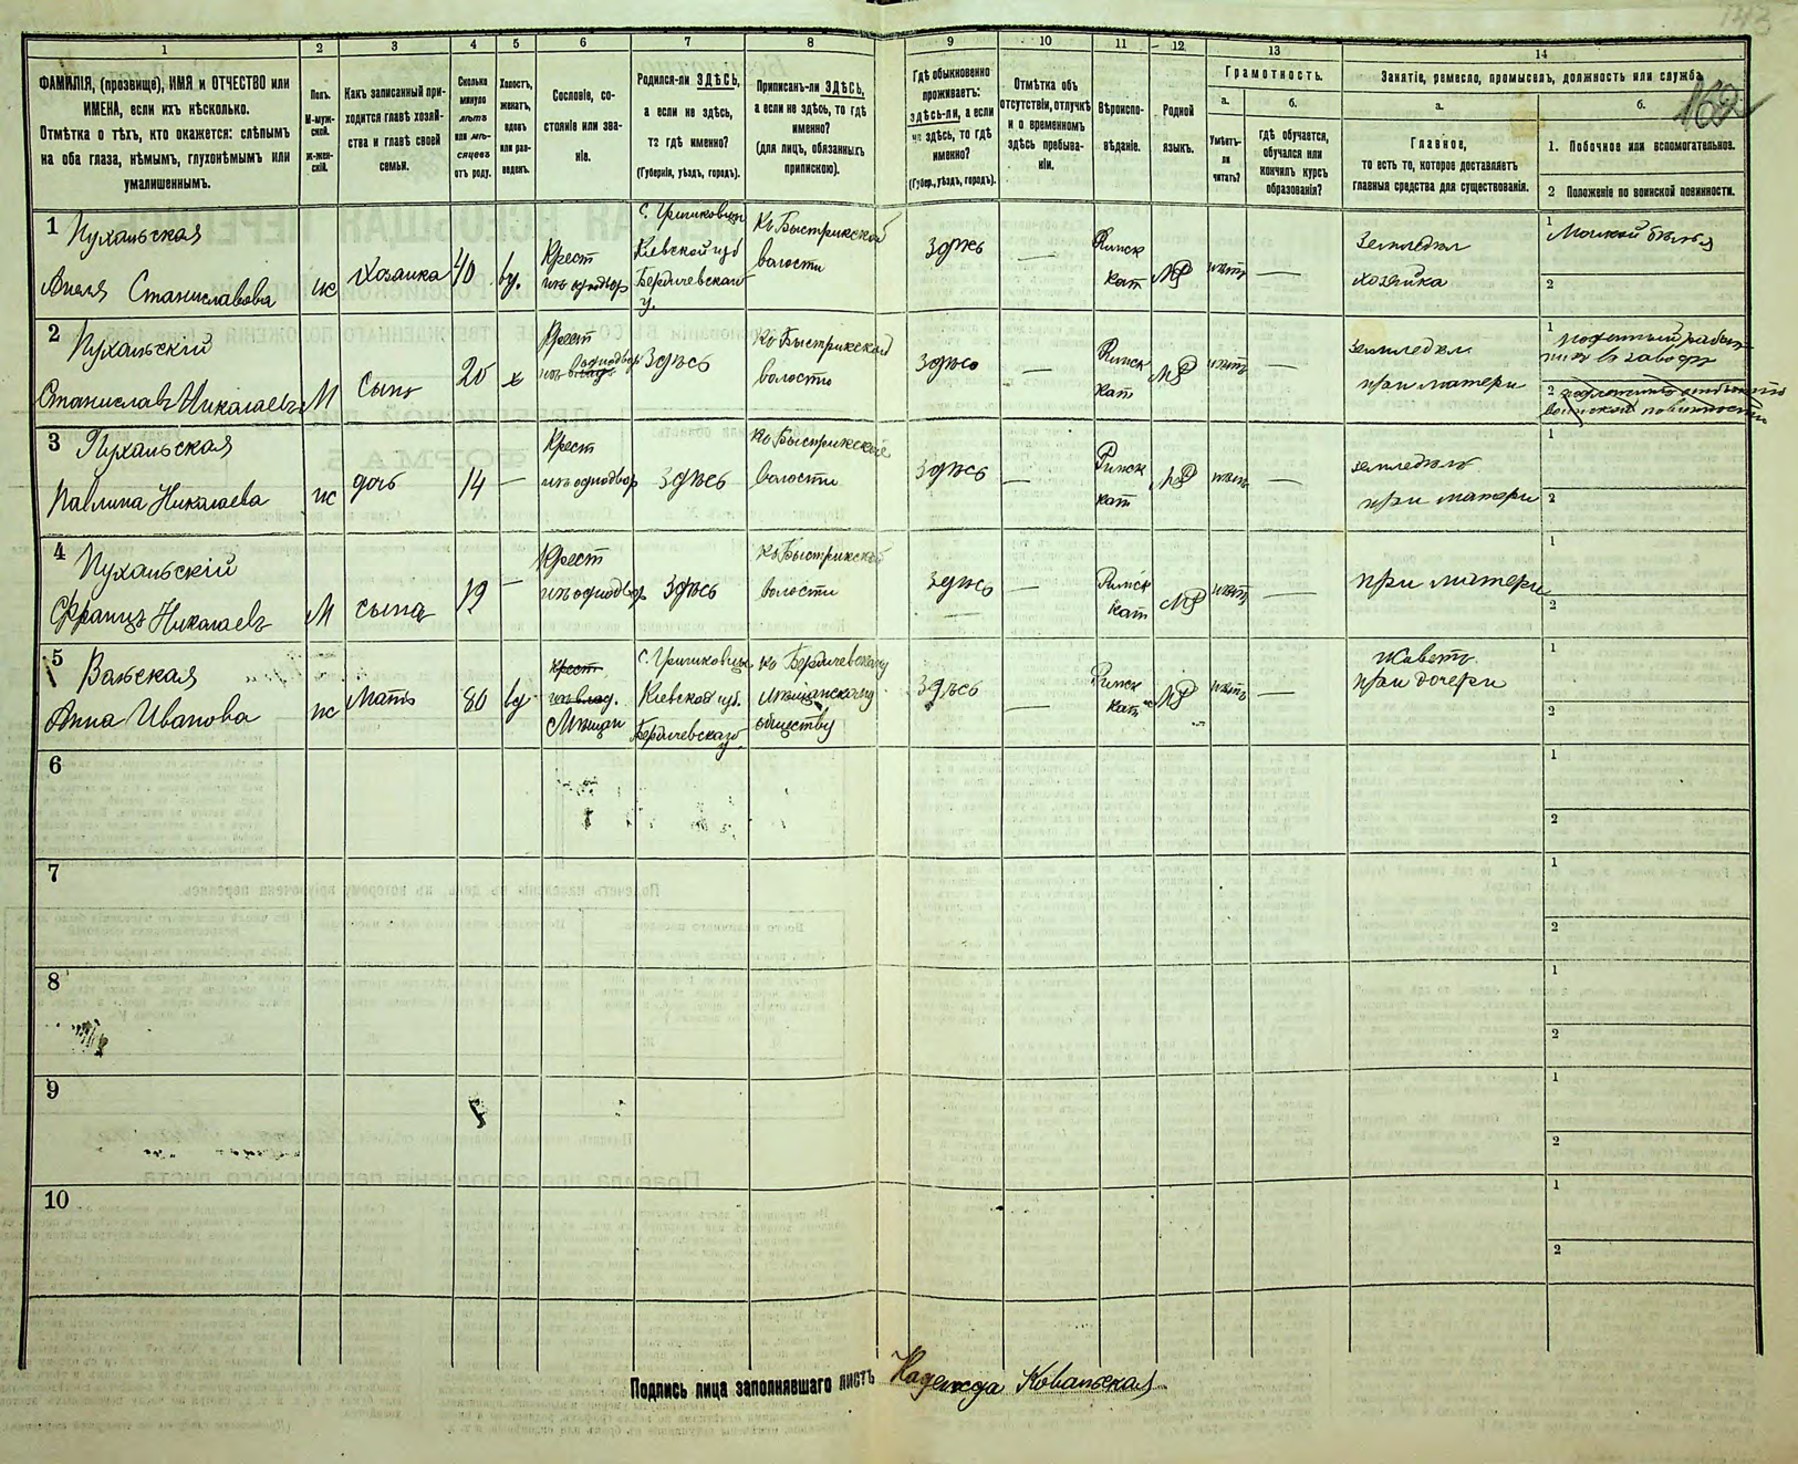 1 2 3 4 5 6 7 8 9 10 11 12 13 14
ФАМИЛІЯ, (прозвище), ИМЯ и ОТЧЕСТВО или
ИМЕНА, если ихъ нѣсколько.
Отмѣтка о тѣхъ, кто окажется: слѣпымъ
на оба глаза, нѣмымъ, глухонѣмымъ или
умалишеннымъ.
Полъ.
М-муж-
ской.
ж-жен-
скій.
Какъ записанный при-
ходится главѣ хозяй-
ства и главѣ своей
семьи.
Сколько
минуло
лѣтъ
или мѣ-
сяцевъ
отъ роду.
Холостъ,
женатъ,
вдовъ
или раз-
веденъ.
Сословіе, со-
стояніе или зва-
ніе.
Родился-ли ЗДѢСЬ,
а если не здѣсь,
то гдѣ именно?
(Губернія, уѣздъ, городъ).
Приписанъ-ли ЗДѢСЬ,
а если не здѣсь, то гдѣ
именно?
(для лицъ, обязанныхъ
припискою).
Гдѣ обыкновенно
проживаетъ:
здѣсь-ли, а если
не здѣсь, то гдѣ
именно?
(Губер., уѣздъ, городъ).
Отмѣтка объ
отсутствіи, отлучкѣ
и о временномъ
здѣсь пребыва-
ніи.
Вѣроиспо-
вѣданіе.
Родной
языкъ.
Грамотность.
а.
Умѣетъ-
ли
читать?
б.
Гдѣ обучается,
обучался или
кончилъ курсъ
образованія?
Занятіе, ремесло, промыселъ, должность или служба
162
а.
Главное,
то есть то, которое доставляетъ
главныя средства для существованія.
б.
1. Побочное или вспомогательное.
2 Положеніе по воинской повинности.
1 Пухальская
Анеля Станиславова
ж
Хозяика
40
вд.
Крест
изъ однодвор
с. Гришковцы
Кіевской губ
Бердичевскаго
у.
Къ Быстрикской
волости
Здѣсь
—
Римск
кат
нѣтъ
—
Земледѣл
хозяйка
1
2
2 Пухальскій
Станиславъ Николаевъ
М
Сынъ
20
х
Крест
изъ влад
однодвор
Здѣсь
Къ Быстрикской
волости
Здѣсь
—
Римск
кат
нѣтъ
—
земледѣл
при матери
1
2
воинской повинности
3 Пухальская
Павлина Николаева
ж
дочь
14
—
Крест
изъ однодвор
Здѣсь
Къ Быстрикской
волости
Здѣсь
—
Римск
кат
нѣтъ
—
земледѣл
при матери
1
2
4 Пухальскій
Францъ Николаевъ
М
сынъ
—
Крест
изъ однодвор
Здѣсь
Къ Быстрикской
волости
Здѣсь
—
Римск
кат
нѣтъ
—
при матери
1
2
5
Анна Иванова
ж
Мать
80
вд
крест
изъ влад.
Мѣщан
с. Гришковцы
Кіевской губ.
Бердичевскаго
у.
Къ Бердичевскому
мѣщанскому
обществу
Здѣсь
—
Римск
кат
нѣтъ
—
живетъ
при дочери
1
2
6
1
2
7
1
2
8
1
2
9
1
2
10
1
2
Подпись лица заполнявшаго листъ Надежда Ковальская